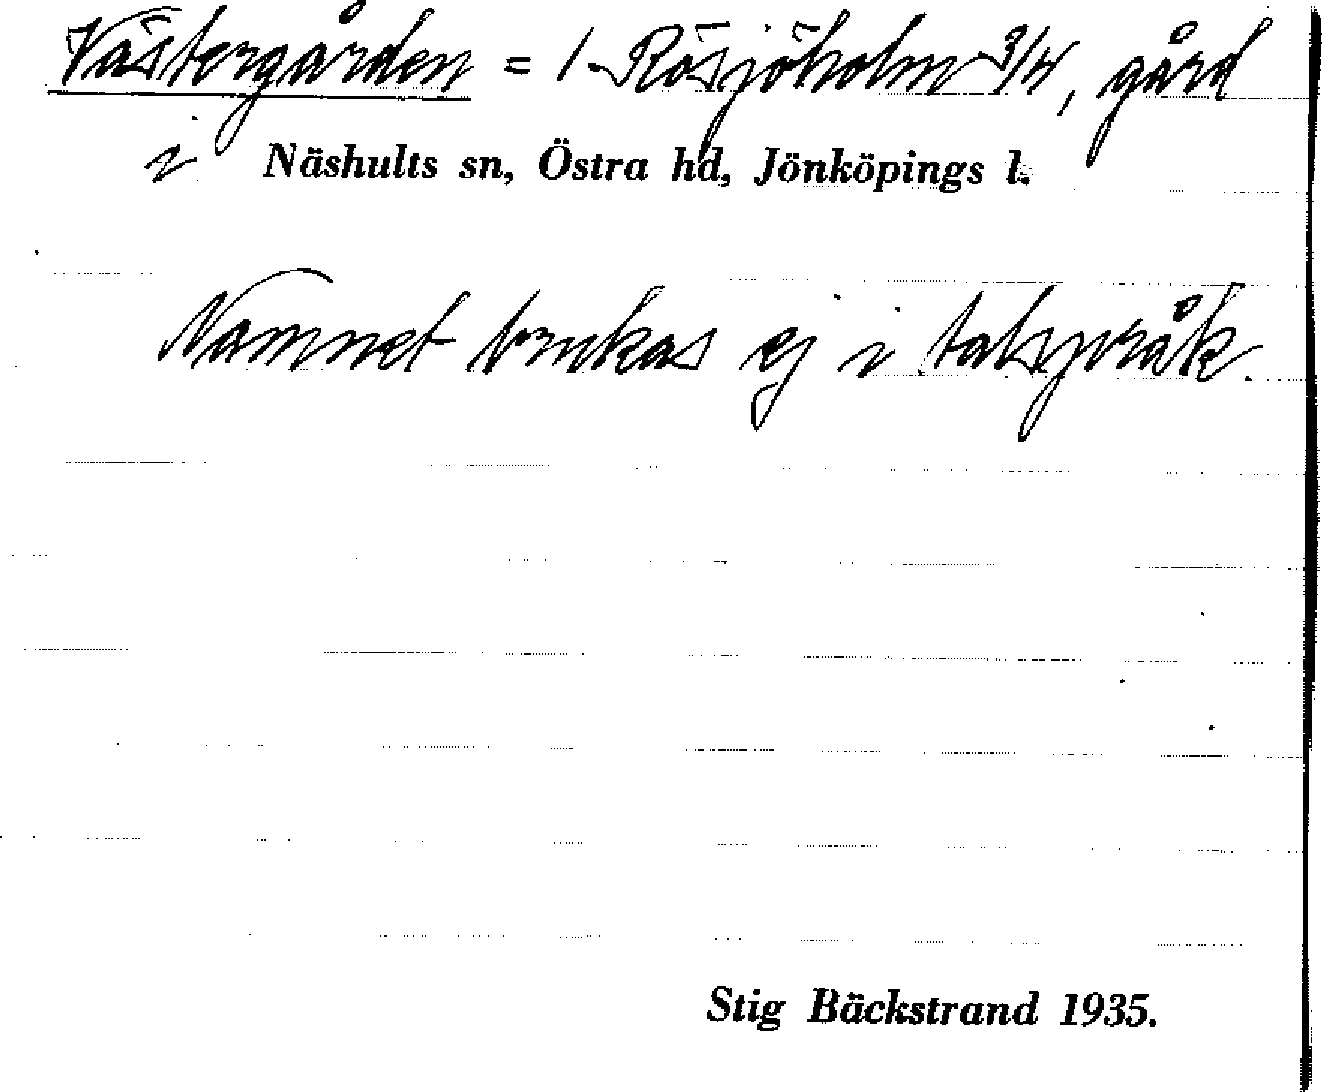 Västergården = 1 Rösjöholm 3/4, gård
i Näshults sn, Östra hd, Jönköpings l.
Namnet brukas ej i talspråk.
Stig Bäckstrand 1935.